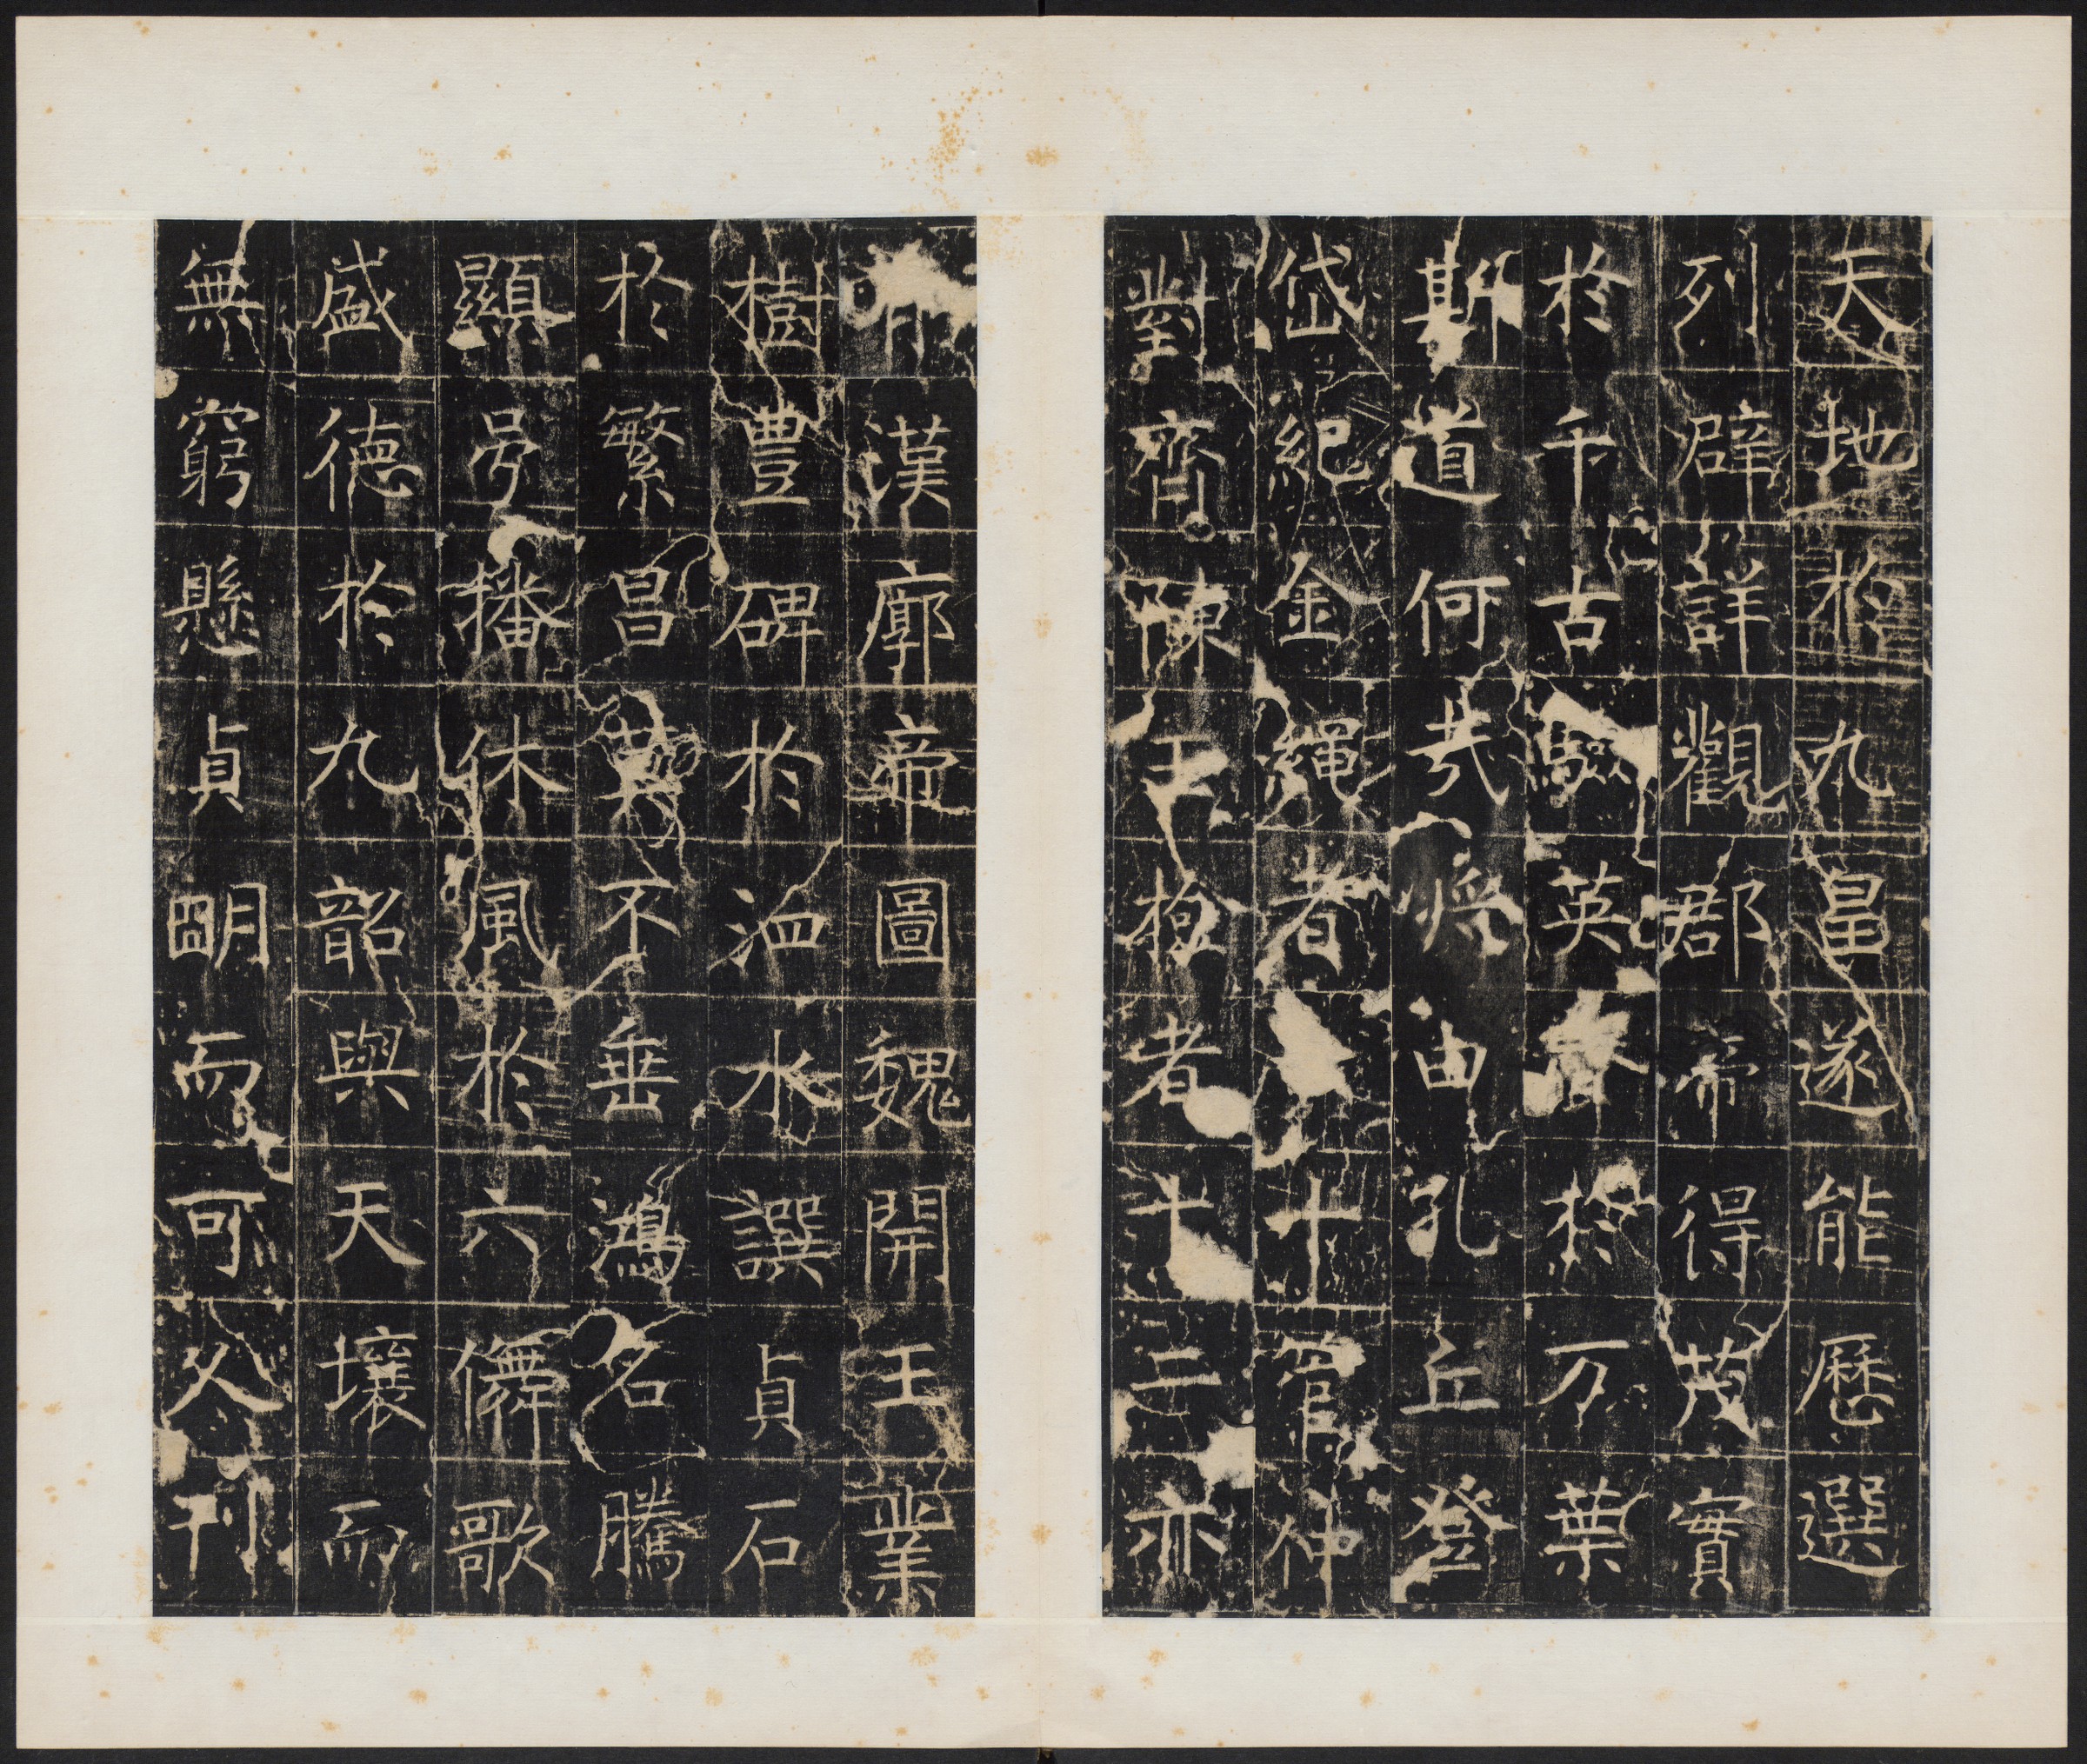 天地於九皇遂能歷選
列辟詳觀郡帝得茂實
於千古驗英聲於万葉
斯道何將由孔丘登
岱紀金繩者十管仲
對齊陳玉檢者十二亦
漢廓帝圖魏開王業
樹豊碑於泗水譔貞石
於繁昌莫不垂鴻名騰
顯号播休風於六儛歌
盛德於九韶與天壤而
無窮懸貞朙而可久刊